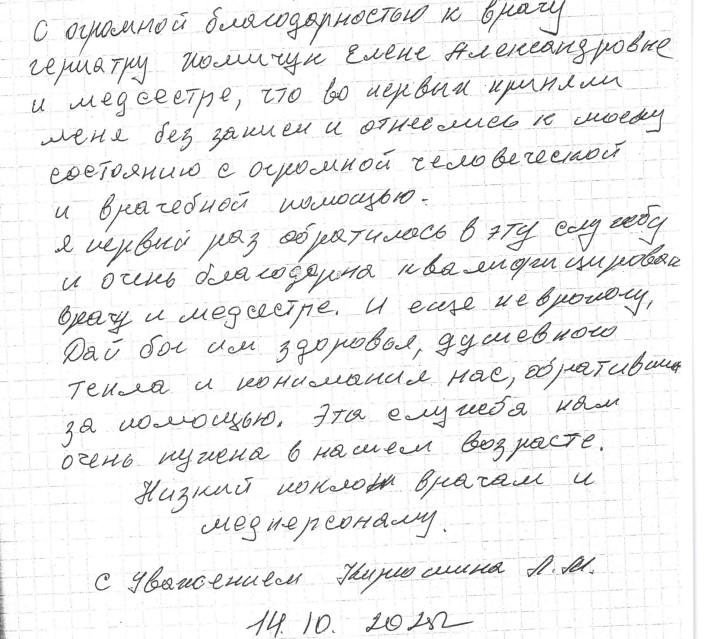 С огромной благодарностью к врачу
гериатру Комичук Елене Александровне
и медсестре, что во первых приняли
меня без записи и отнеслись к моему
состоянию с огромной человеческой
и врачебной помощью.
Я первый раз обратилась в эту службу
и очень благодарна квалифицирован
врачу и медсестре. И еще неврологу,
Дай бог им здоровья, душевного
тепла и понимания нас, обративших
за помощью. Эта служба нам
очень нужна в нашем возрасте.
Низкий поклон врачам и
медперсоналу.
С Уважением Кирюшина Л.М.
14. 10. 2025г